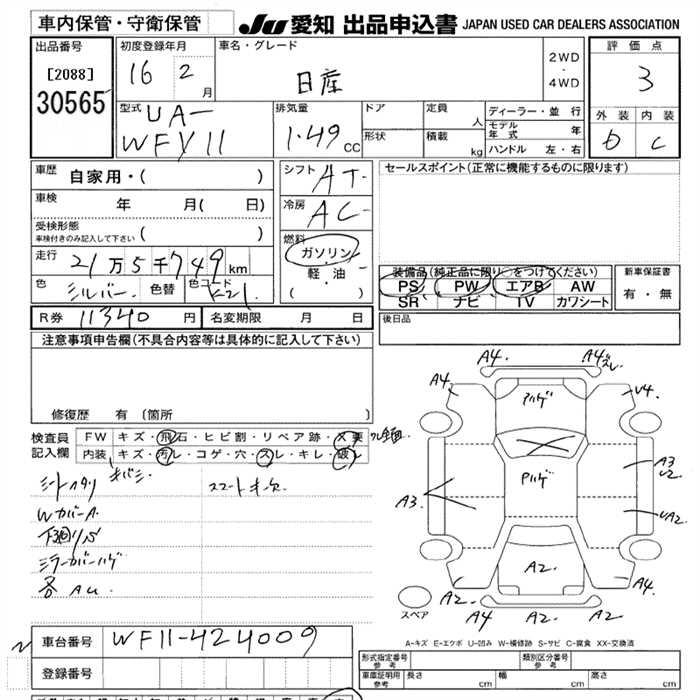 車内保管・守衛保管
JU 愛知 出品申込書 JAPAN USED CAR DEALERS ASSOCIATION
出品番号
[2088]
30565
初度登録年月
16 2 月
車名・グレード
日産
2WD
・
4WD
評価点
3
外装 内装
D C
型式
UA-
WFY11
排気量
1.49 CC
ドア
形状
定員 人
積載 kg
ディーラー・並 行
モデル年式 年
ハンドル 左・右
車歴 自家用・( )
車検 年 月( 日)
受検形態
車検付きのみ記入して下さい ( )
走行 21万5千749km
色 シルバー 色替 色コード K21
シフト AT
冷房 AC
燃料
ガソリン
軽・油
( )
セールスポイント(正常に機能するものに限ります)
装備品(純正品に限り○をつけてください)
PS PW エアB AW
SR ナビ TV カワシート
新車保証書
有・無
R券 11340 円 名変期限 月 日
後日品
注意事項申告欄(不具合内容等は具体的に記入して下さい)
修復歴 有 (箇所 )
検査員
記入欄
FW キズ・飛石・ヒビ割・リペア跡・X要
内装 キズ・汚れ・コゲ・穴・スレ・キレ・破れ
シートヘタリ キバミ
スマートキー欠
WカバーA
下廻りS
ミラーカバーハゲ
各AU
A4. A4ズレ
A4 ハゲ U4
A3 ハゲ A3
U2
UA2
A2
A2 A2. A4
A4 A2 A2
スペア
A-キズ E-エクボ U-凹み W-補修跡 S-サビ C-腐食 XX-交換済
車台番号 WF11-424009
登録番号
形式指定番号
参考
類別区分番号
車庫証明用
参考
長さ cm 幅 cm 高さ cm